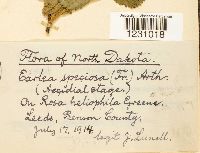 1231018
Flora of North Dakota.
Earlea speciosa (Fr.) Arth.
(Aecidial stage.)
On Rosa heliophila Greene.
Leeds, Benson County,
July 17, 1914. Legit J. Lunell.